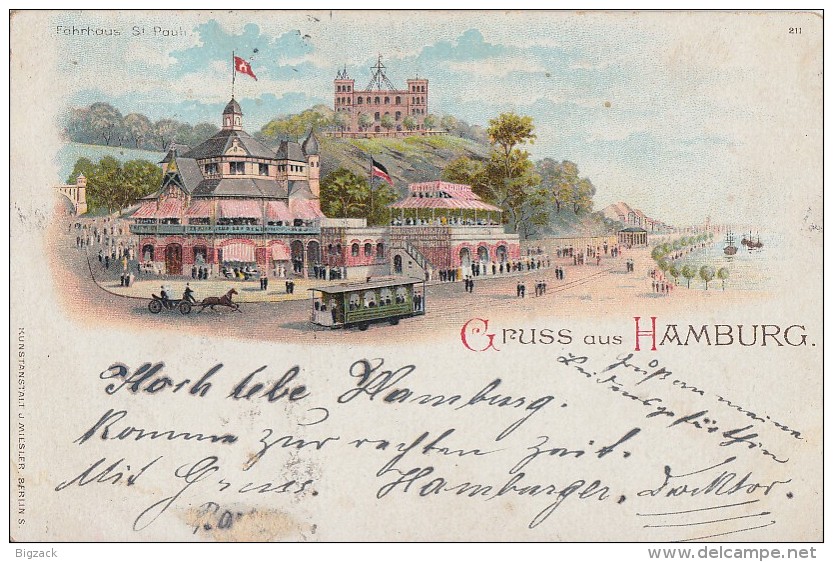 Fährhaus St Pauli
211
GRUSS AUS HAMBURG.
Hoch lebe Hamburg.
Komme zur rechten Zeit.
Mit Gruss. Hamburger, Doktor.
Grüßen meine
Leidensgefährtin
KUNSTANSTALT J. MIESLER, BERLIN S.
Bigzack
www.delcampe.net